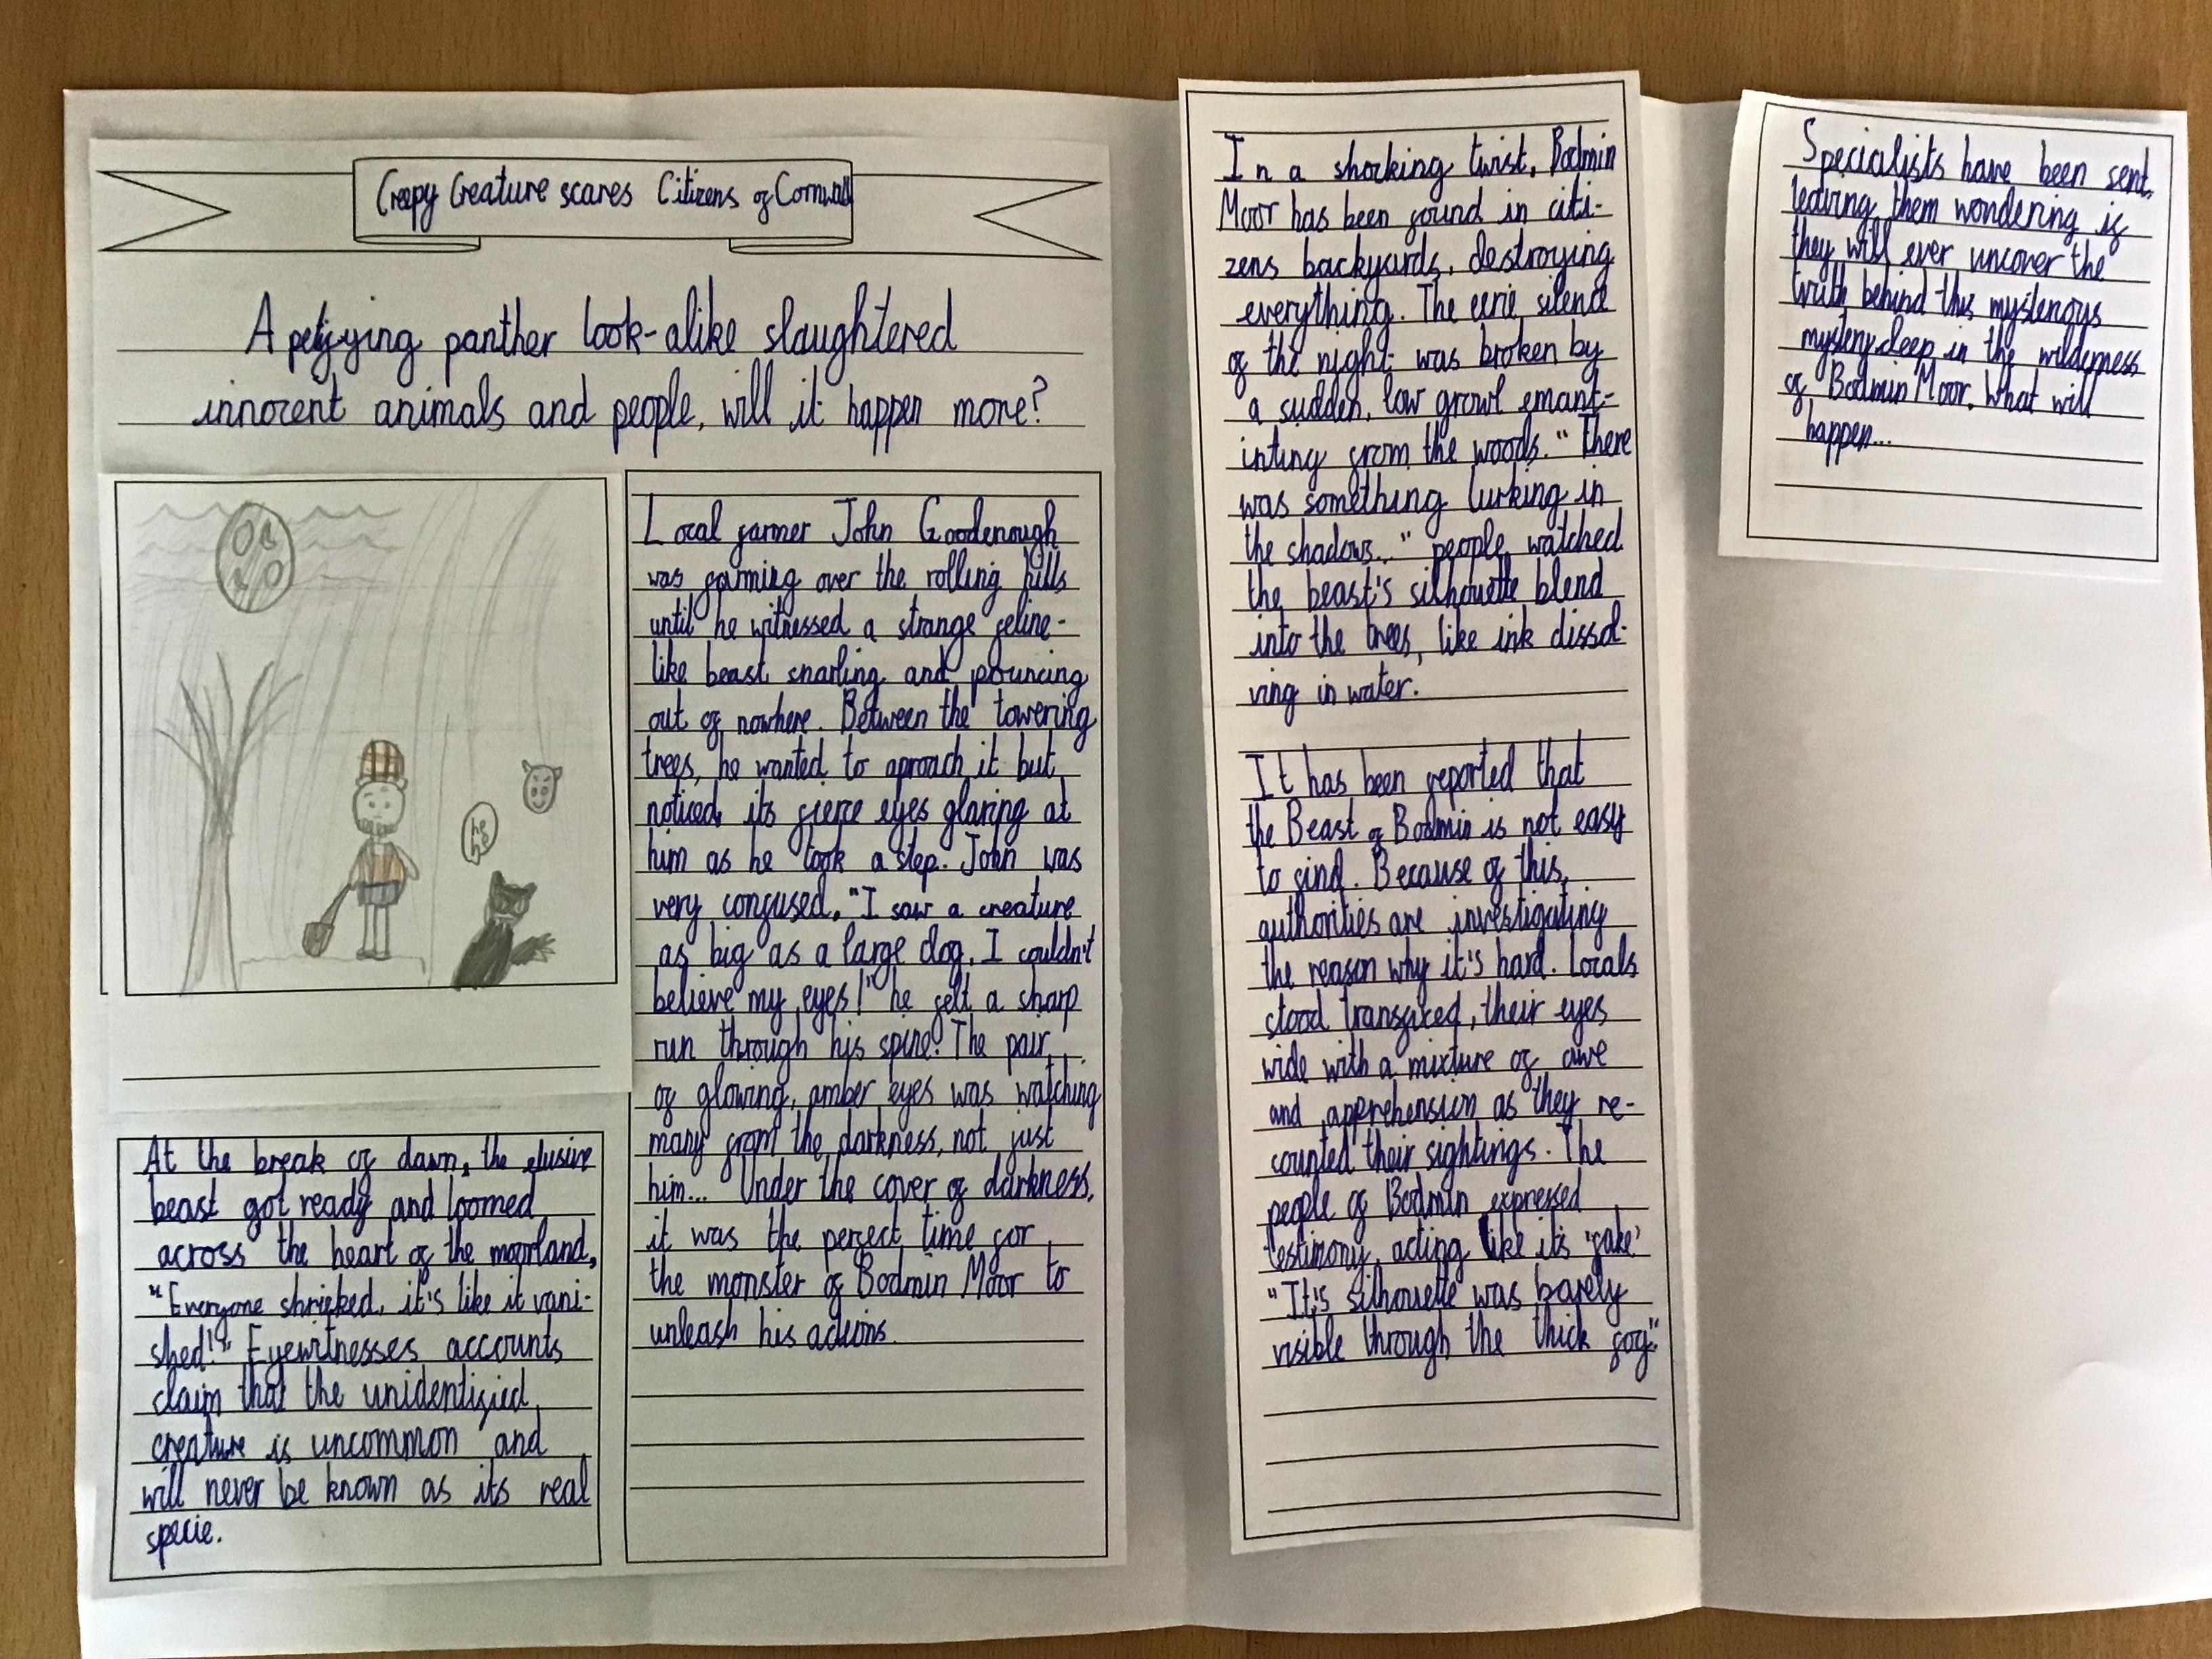 Creepy Creature scares Citizens of Cornwall
A petifying panther look-alike slaughtered
innocent animals and people, will it happen more?
he
he
At the break of dawn, the elusive
beast got ready and loomed
across the heart of the moorland,
"Everyone shrieked, it's like it vani-
shed!" Eyewitnesses accounts
claim that the unidentified
creature is uncommon and
will never be known as its real
specie.
Local farmer John Goodenough
was farming over the rolling hills
until he witnessed a strange feline-
like beast snarling and pouncing
out of nowhere. Between the towering
trees, he wanted to aproach it but
noticed its fierce eyes glaring at
him as he took a step. John was
very confused, "I saw a creature
as big as a large dog, I couldn't
believe my eyes!" he felt a sharp
run through his spine! The pair
of glowing, amber eyes was watching
many from the darkness, not just
him... Under the cover of darkness,
it was the perfect time for
the monster of Bodmin Moor to
unleash his actions.
In a shocking twist, Bodmin
Moor has been found in citi-
zens backyards, destroying
everything. The eerie silence
of the night was broken by
a sudden, low growl emant-
inting from the woods. "There
was something lurking in
the shadows..." people watched
the beast's silhouette blend
into the trees, like ink dissol-
ving in water.
It has been reported that
the Beast of Bodmin is not easy
to find. Because of this,
authorities are investigating
the reason why it's hard. Locals
stood transfixed, their eyes
wide with a mixture of awe
and apprehension as they re-
counted their sightings. The
people of Bodmin expressed
testimony, acting like it's 'fake'
"It's silhouette was barely
visible through the thick fog."
Specialists have been sent,
leaving them wondering if
they will ever uncover the
truth behind this mysterious
mystery deep in the wilderness
of Bodmin Moor. What will
happen...